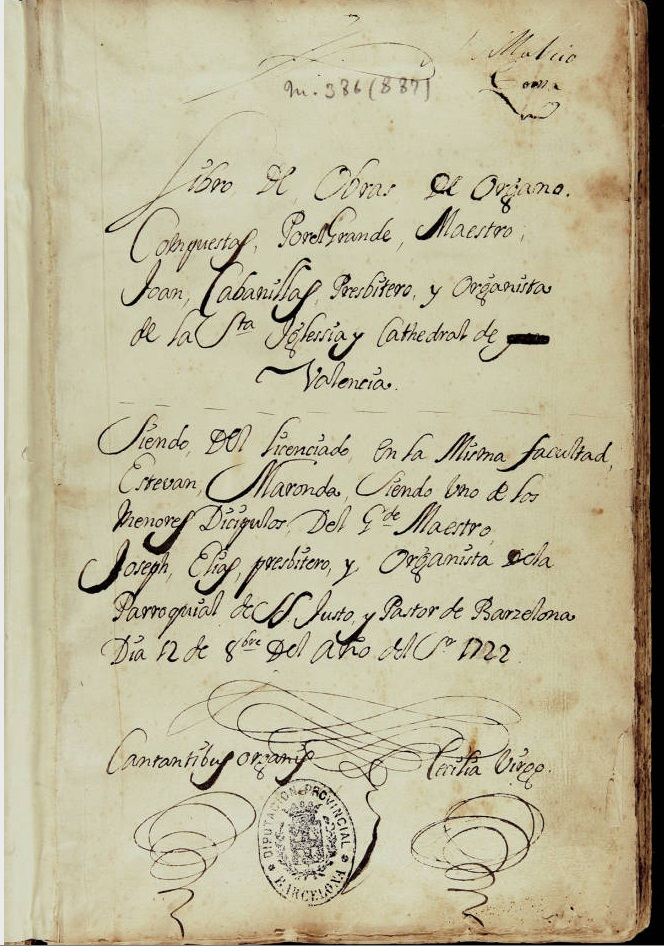 M. 386 (887)
Libro De Obras De Organo.
Compuestas, Por el Grande, Maestro,
Joan, Cabanillas, Presbitero, y Organista
de la Sta Iglessia y Cathedral de
Valencia.
Siendo, Del Licenciado, en la Misma facultad,
Estevan, Maronda, Siendo Uno de los
Menores Dicipulos, Del Gde Maestro,
Joseph, Elias, presbitero, y Organista De la
Parroquial de SS Justo, y Pastor de Barzelona
Dia 12 de 8bre Del Año del Sr 1722
Cantantibus organis Cecilia Virgo.
DIPUTACION PROVINCIAL
BARCELONA